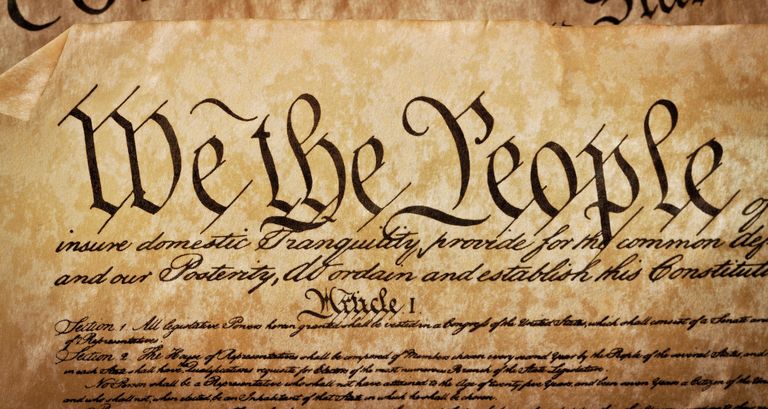 We the People of
insure domestic Tranquility, provide for the common def
and our Posterity, do ordain and establish this Constituti
Article I
Section 1. All legislative Powers herein granted shall be vested in a Congress of the United States, which shall consist of a Senate and
of Representatives
Section 2. The House of Representatives shall be composed of Members chosen every second Year by the People of the several States, and
in each State shall have Qualifications requisite for Electors of the most numerous Branch of the State Legislature.
No Person shall be a Representative who shall not have attained to the Age of twenty five Years, and been seven Years a Citizen of the Uni
and who shall not, when elected, be an Inhabitant of that State in which he shall be chosen.